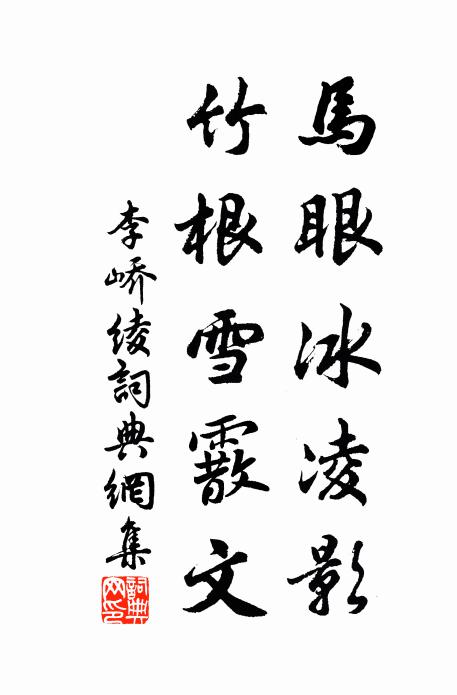 馬眼冰凌影
竹根雪霰文
李嶠綾詞典網集
詞典網印